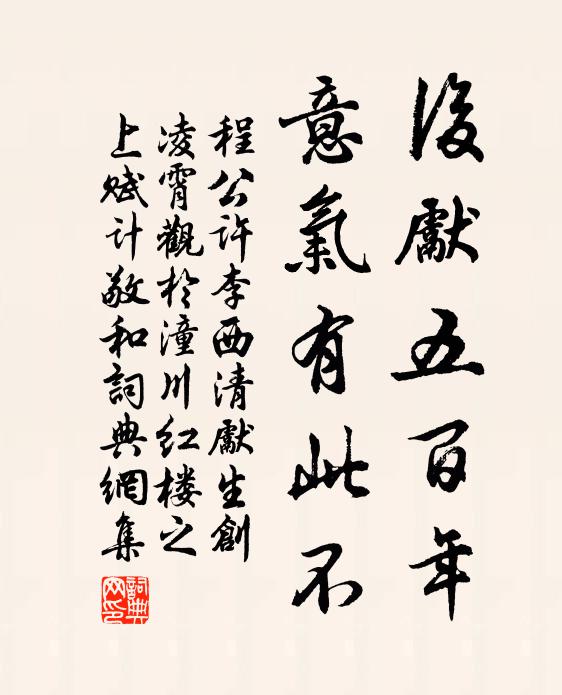 後獻五百年
意氣有此不
程公許李西清獻生創
凌霄觀於潼川紅楼之
上賦计敬和詞典網集
詞典网印